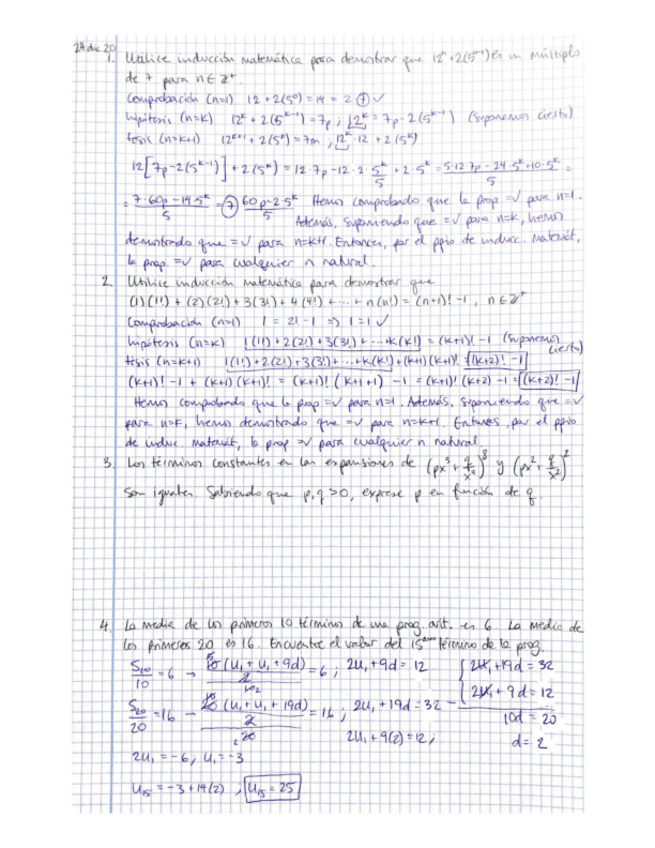 24 dic 20
1. Utilice inducción matemática para demostrar que 12ⁿ + 2(5ⁿ⁻¹) es un múltiplo
de 7 para n ∈ ℤ⁺.
Comprobación (n=1) 12 + 2(5⁰) = 14 = 2·⑦ ✓
hipótesis (n=k) 12ᵏ + 2(5ᵏ⁻¹) = 7p ; 12ᵏ = 7p - 2(5ᵏ⁻¹) (suponemos cierto)
tesis (n=k+1) 12ᵏ⁺¹ + 2(5ᵏ) = 7m ; 12ᵏ·12 + 2(5ᵏ)
12[7p - 2(5ᵏ⁻¹)] + 2(5ᵏ) = 12·7p - 12·2·5ᵏ/5 + 2·5ᵏ = (5·12·7p - 24·5ᵏ + 10·5ᵏ)/5 =
= (7·60p - 14·5ᵏ)/5 = ⑦ (60p - 2·5ᵏ)/5 Hemos comprobado que la prop =V para n=1.
Además, suponiendo que =V para n=k, hemos
demostrado que =V para n=k+1. Entonces, por el ppio de induc. matemát,
la prop. =V para cualquier n natural.
2. Utilice inducción matemática para demostrar que
(1)(1!) + (2)(2!) + 3(3!) + 4(4!) + ... + n(n!) = (n+1)! - 1, n ∈ ℤ⁺
Comprobación (n=1) 1 = 2! - 1 ⇒ 1 = 1 ✓
hipótesis (n=k) 1(1!) + 2(2!) + 3(3!) + ... + k(k!) = (k+1)! - 1 (suponemos
cierto)
tesis (n=k+1) 1(1!) + 2(2!) + 3(3!) + ... + k(k!) + (k+1)(k+1)! = (k+2)! - 1
(k+1)! - 1 + (k+1)(k+1)! = (k+1)! (k+1+1) - 1 = (k+1)! (k+2) - 1 = (k+2)! - 1
Hemos comprobado que la prop =V para n=1. Además, suponiendo que =V
para n=k, hemos demostrado que =V para n=k+1. Entonces, por el ppio
de induc. matemát, la prop =V para cualquier n natural.
3. Los términos constantes en las expansiones de (px³ + q/x³)⁸ y (px² + q/x²)²
son iguales. Sabiendo que p,q > 0, exprese p en función de q.
4. La media de los primeros 10 términos de una prog. arit. es 6. La media de
los primeros 20 es 16. Encuentre el valor del 15 término de la prog.
S₁₀/10 = 6 → 10(u₁ + u₁ + 9d)/2 /10 = 6 ; 2u₁ + 9d = 12 { 2u₁ + 19d = 32
S₂₀/20 = 16 → 20(u₁ + u₁ + 19d)/2 /20 = 16 ; 2u₁ + 19d = 32 - 2u₁ + 9d = 12
10d = 20
2u₁ + 9(2) = 12 ; d = 2
2u₁ = -6 ; u₁ = -3
u₁₅ = -3 + 14(2) ; u₁₅ = 25